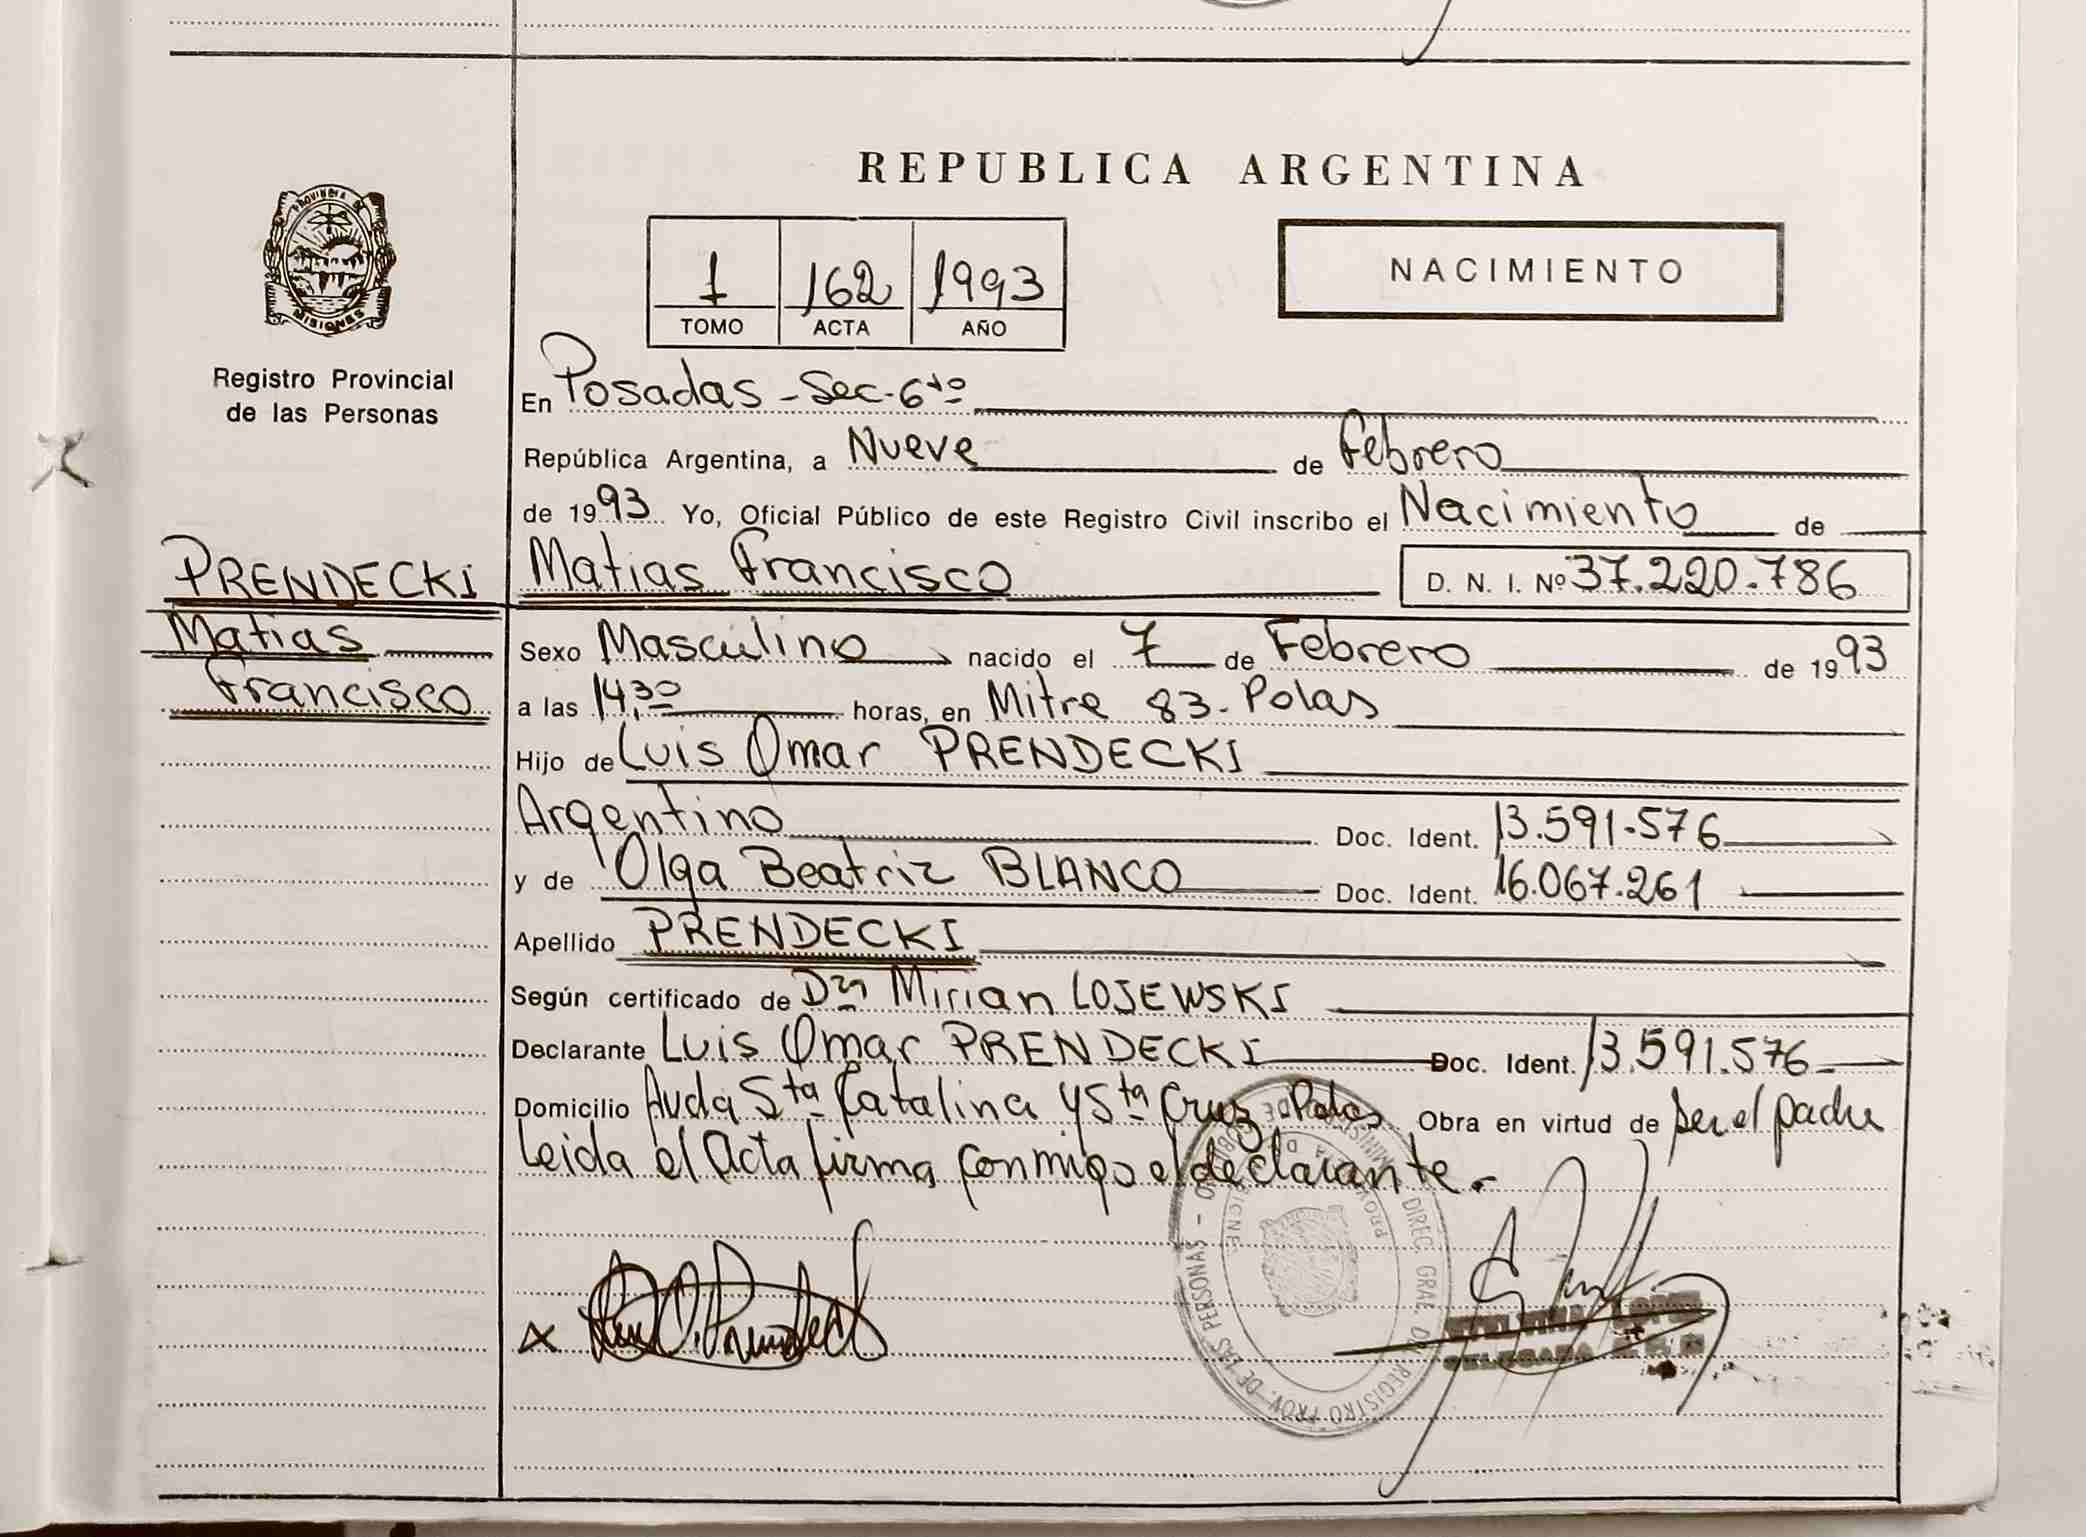 REPUBLICA ARGENTINA
PROVINCIA DE
MISIONES
Registro Provincial
de las Personas
1 162 1993
TOMO ACTA AÑO
NACIMIENTO
En Posadas - Sec. 6ta
República Argentina, a Nueve de Febrero
de 1993 Yo, Oficial Público de este Registro Civil inscribo el Nacimiento de
PRENDECKI
Matias
Francisco
Matias Francisco D. N. I. Nº 37.220.786
Sexo Masculino nacido el 7 de Febrero de 1993
a las 14,30 horas, en Mitre 83. Pdas
Hijo de Luis Omar PRENDECKI
Argentino Doc. Ident. 13.591.576
y de Olga Beatriz BLANCO Doc. Ident. 16.067.261
Apellido PRENDECKI
Según certificado de Dra Mirian LOJEWSKI
Declarante Luis Omar PRENDECKI Doc. Ident. 13.591.576
Domicilio Avda Sta Catalina y Sta Cruz Pdas Obra en virtud de ser el padre
Leida el Acta firma conmigo el declarante.
DIREC. GRAL. DEL REGISTRO PROV. DE LAS PERSONAS
LOPEZ
DELEGADA